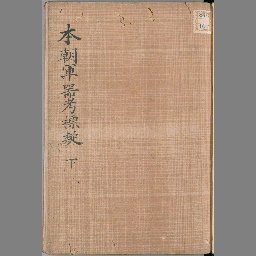 本朝軍器考標疑 下